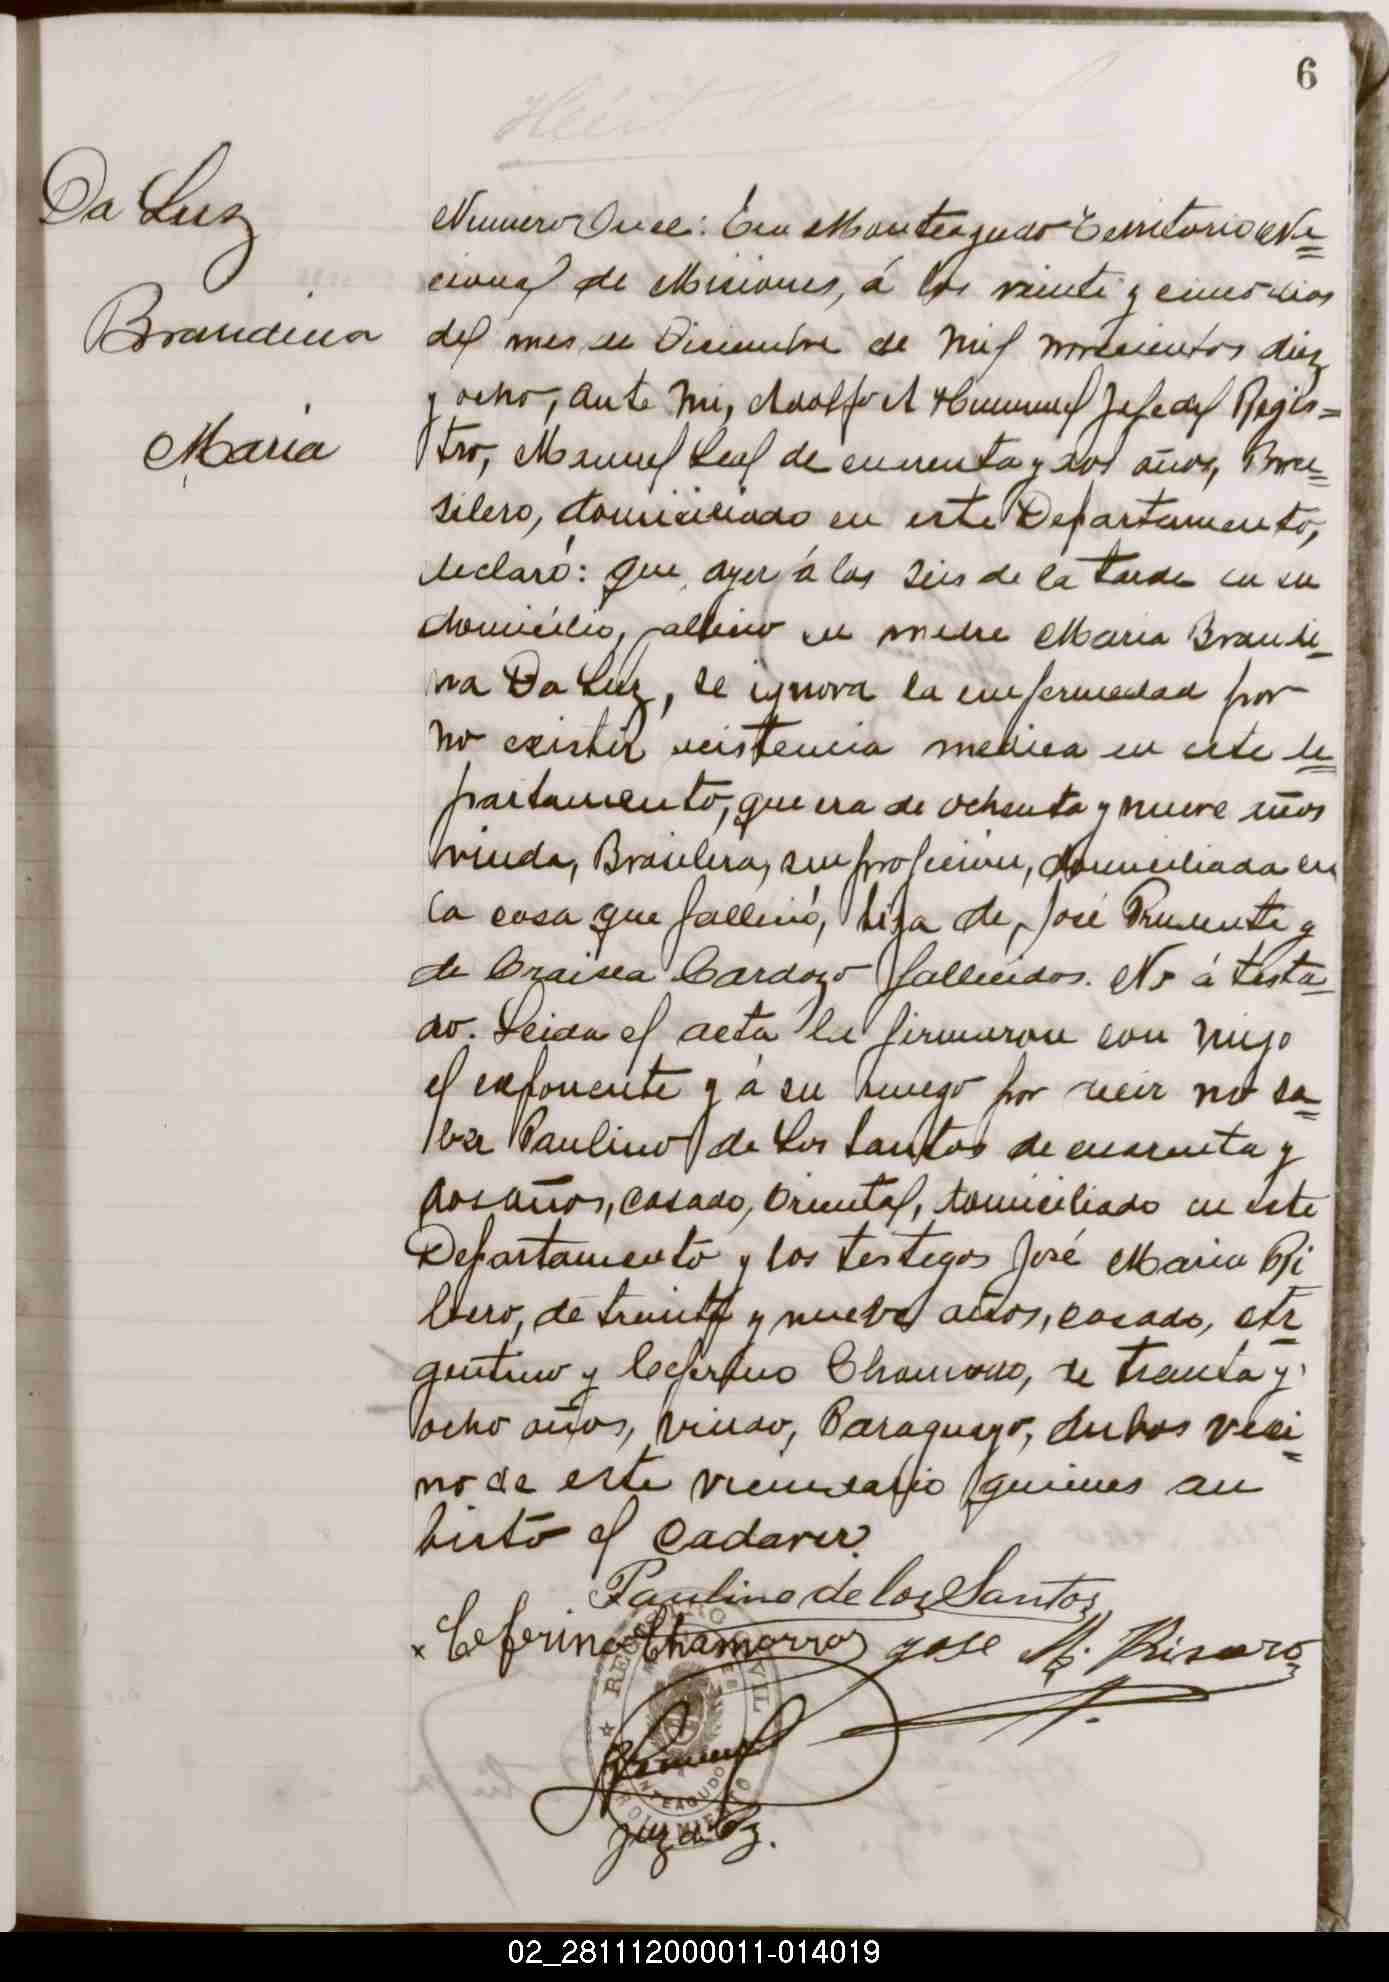 6
Da Luz
Brandina
Maria
Numero Once: En Monteagudo Territorio Na=
cional de Misiones, á los veinte y cinco dias
del mes de Diciembre de mil novecientos diez
y ocho, ante mi, Adolfo A Hummel Jefe del Regis=
tro, Manuel Leal de cuarenta y dos años, Bra=
silero, domiciliado en este Departamento,
declaró: que, ayer á las seis de la tarde en su
domicilio, fallecio su madre Maria Brandi-
na Da Luz, se ignora la enfermedad por
no existir acistencia medica en este de=
partamento, que era de ochenta y nueve años
viuda, Brasilera, sin profecion, domiciliada en
la casa que falleció, hija de, José Prudente y
de Cardozo fallecidos. No á testa-
do. Leida el acta la firmaron con migo
el exponente y á su ruego por decir no sa=
ber Paulino de Los Santos de cuarenta y
dos años, casado, Oriental, domiciliado en este
Departamento y los testegos José Maria Ri
bero, de treinta y nueve años, casado, Ar=
gentino y Ceferino Chamorro, de treinta y
ocho años, viudo, Paraguayo, Anbos veci=
no de este vecindario quienes an
bisto el cadaver.
Paulino de los Santos
x Ceferino Chamorro Jose M.
REGISTRO CIVIL
Hummel
MONTEAGUDO
Juez de Paz.
02_281112000011-014019